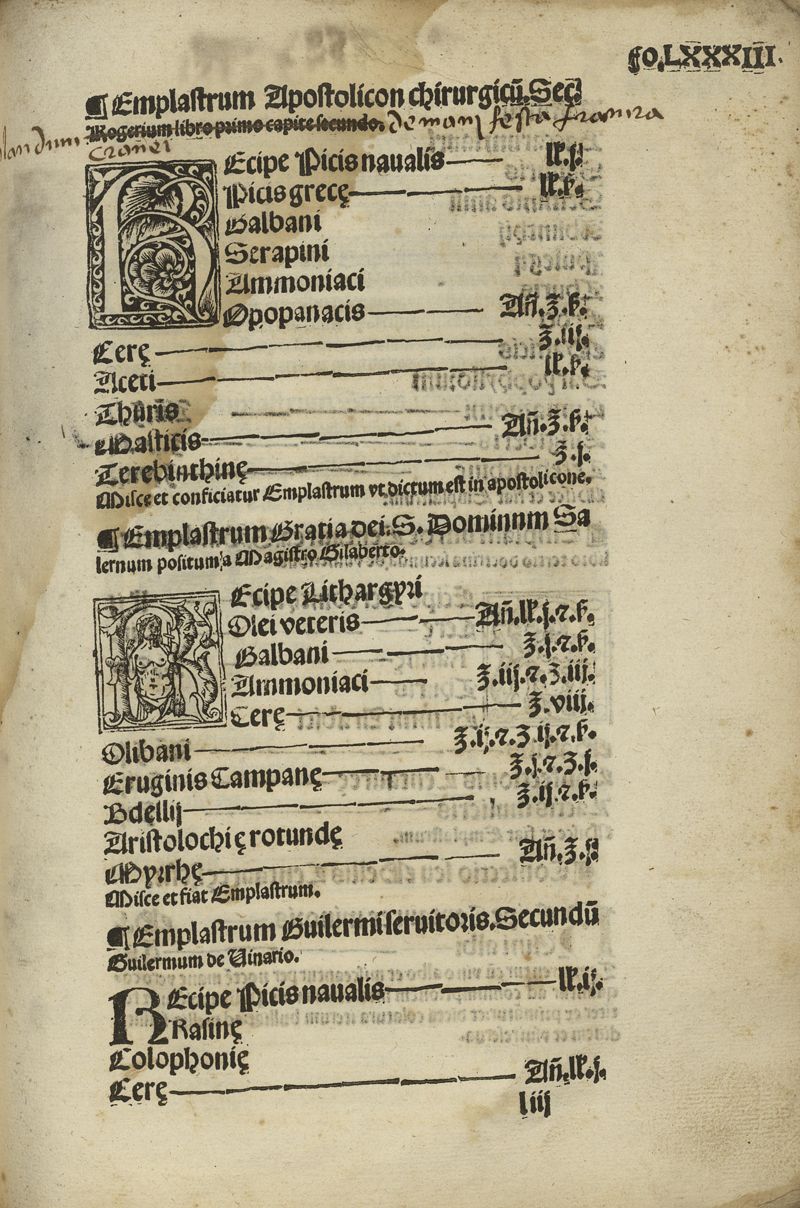 fo.LXXXIII.
¶ Emplastrum Apostolicon chirurgicũ. Secũ
Rogerium libro primo capite secundo. de manifesta fractura
cranei
Recipe Picis naualis lb.j.
Picis grecę lb.ß.
Galbani
Serapini
Ammoniaci
Opopanacis Añ.ʒ.ß.
Cerę ʒ.iij.
Aceti lb.ß.
Thuris
Masticis Añ.ʒ.ß.
Terebinthinę ʒ.j.
Misce et conficiatur Emplastrum vt dictum est in apostolicone.
¶ Emplastrum Gratia dei. S. Dominum Sa
lernum positum a Magistro Gilaberto.
Recipe Lithargyri
Olei veteris Añ.lb.j.⁊.ß.
Galbani ʒ.j.⁊.ß.
Ammoniaci ʒ.iij.⁊.ʒ.iij.
Cerę ʒ.viij.
Olibani ʒ.ij.⁊.ʒ.ij.⁊.ß.
Eruginis Campanę ʒ.j.⁊.ʒ.j.
Bdellij ʒ.ij.⁊.ß.
Aristolochię rotundę
Myrrhę Añ.ʒ.j.
Misce et fiat Emplastrum.
¶ Emplastrum Guilermi seruitoris. Secundũ
Guilermum de Uinario.
REcipe Picis naualis lb.ij.
Rasinę
Colophonię
Cerę Añ.lb.j.
l iij